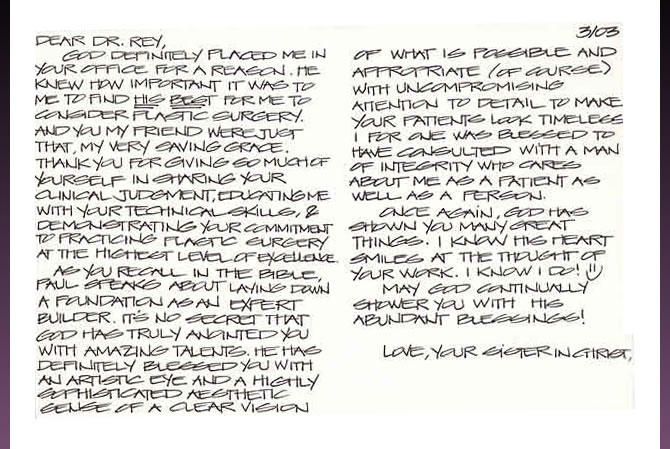 3/03
DEAR DR. REY,
GOD DEFINITELY PLACED ME IN
YOUR OFFICE FOR A REASON. HE
KNEW HOW IMPORTANT IT WAS TO
ME TO FIND HIS BEST FOR ME TO
CONSIDER PLASTIC SURGERY.
AND YOU MY FRIEND WERE JUST
THAT, MY VERY SAVING GRACE.
THANK YOU FOR GIVING SO MUCH OF
YOURSELF IN SHARING YOUR
CLINICAL JUDGMENT, EDUCATING ME
WITH YOUR TECHNICAL SKILLS, &
DEMONSTRATING YOUR COMMITMENT
TO PRACTICING PLASTIC SURGERY
AT THE HIGHEST LEVEL OF EXCELLENCE.
AS YOU RECALL IN THE BIBLE,
PAUL SPEAKS ABOUT LAYING DOWN
A FOUNDATION AS AN EXPERT
BUILDER. IT'S NO SECRET THAT
GOD HAS TRULY ANOINTED YOU
WITH AMAZING TALENTS. HE HAS
DEFINITELY BLESSED YOU WITH
AN ARTISTIC EYE AND A HIGHLY
SOPHISTICATED AESTHETIC
SENSE OF A CLEAR VISION
OF WHAT IS POSSIBLE AND
APPROPRIATE (OF COURSE)
WITH UNCOMPROMISING
ATTENTION TO DETAIL TO MAKE
YOUR PATIENTS LOOK TIMELESS
I FOR ONE WAS BLESSED TO
HAVE CONSULTED WITH A MAN
OF INTEGRITY WHO CARES
ABOUT ME AS A PATIENT AS
WELL AS A PERSON.
ONCE AGAIN, GOD HAS
SHOWN YOU MANY GREAT
THINGS. I KNOW HIS HEART
SMILES AT THE THOUGHT OF
YOUR WORK. I KNOW I DO!
MAY GOD CONTINUALLY
SHOWER YOU WITH HIS
ABUNDANT BLESSINGS!
LOVE, YOUR SISTER IN CHRIST,